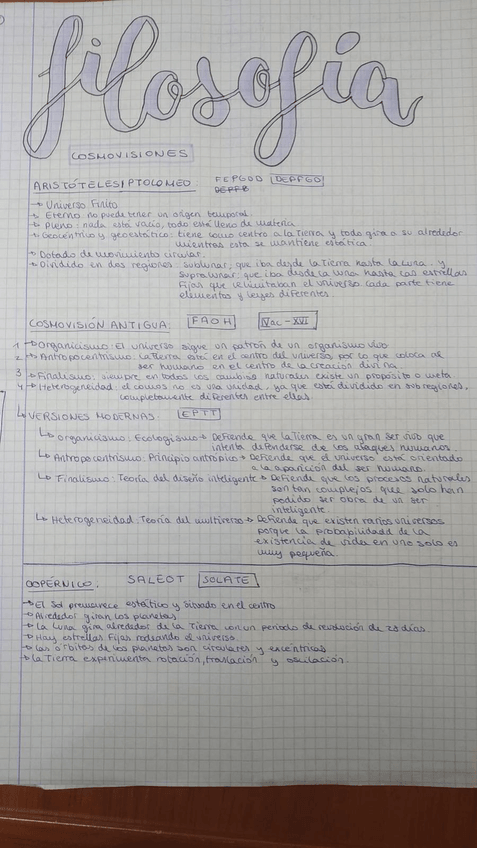 filosofía
COSMOVISIONES
ARISTÓTELES/PTOLOMEO FEPGDD DEPFGD
DEPFB
→ Universo Finito
→ Eterno: no puede tener un origen temporal
→ Pleno: nada está vacío, todo está lleno de materia
→ Geocéntrico y geoestático: tiene como centro a la Tierra y todo gira a su alrededor
mientras esta se mantiene estática.
→ Dotado de movimiento circular
→ Dividido en dos regiones: Sublunar, que iba desde la Tierra hasta la Luna, y
Supralunar, que iba desde la Luna hasta las estrellas
Fijas que delimitaban el universo. Cada parte tiene
elementos y leyes diferentes.
COSMOVISIÓN ANTIGUA: FAOH IVac-XVI
1 → Organicismo: El universo sigue un patrón de un organismo vivo
2 → Antropocentrismo: La Tierra está en el centro del universo, por lo que coloca al
ser humano en el centro de la creación divina.
3 → Finalismo: siempre en todos los cambios naturales existe un propósito o meta
4 → Heterogeneidad: el cosmos no es una unidad, ya que está dividido en subregiones,
completamente diferentes entre ellas.
↳ VERSIONES MODERNAS: EPTT
↳ Organicismo: Ecologismo → Defiende que la Tierra es un gran ser vivo que
intenta defenderse de los ataques humanos.
↳ Antropocentrismo: Principio antrópico → Defiende que el universo está orientado
a la aparición del ser humano.
↳ Finalismo: Teoría del diseño inteligente → Defiende que los procesos naturales
son tan complejos que solo han
podido ser obra de un ser
inteligente.
↳ Heterogeneidad: Teoría del multiverso → Defiende que existen varios universos
porque la probabilidad de la
existencia de vida en uno solo es
muy pequeña.
COPÉRNICO. SALEOT SOLATE
→ El Sol premanece estático y situado en el centro
→ Alrededor giran los planetas
→ La Luna gira alrededor de la Tierra con un periodo de revolución de 29 días.
→ Hay estrellas Fijas rodeando el universo.
→ Las órbitas de los planetas son circulares y excéntricas
→ La Tierra experimenta rotación, traslación y oscilación.